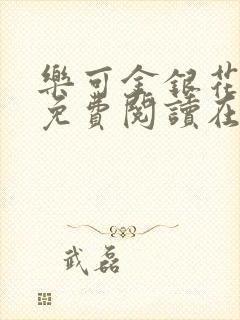 樂可金銀花
免費閱讀在
武磊